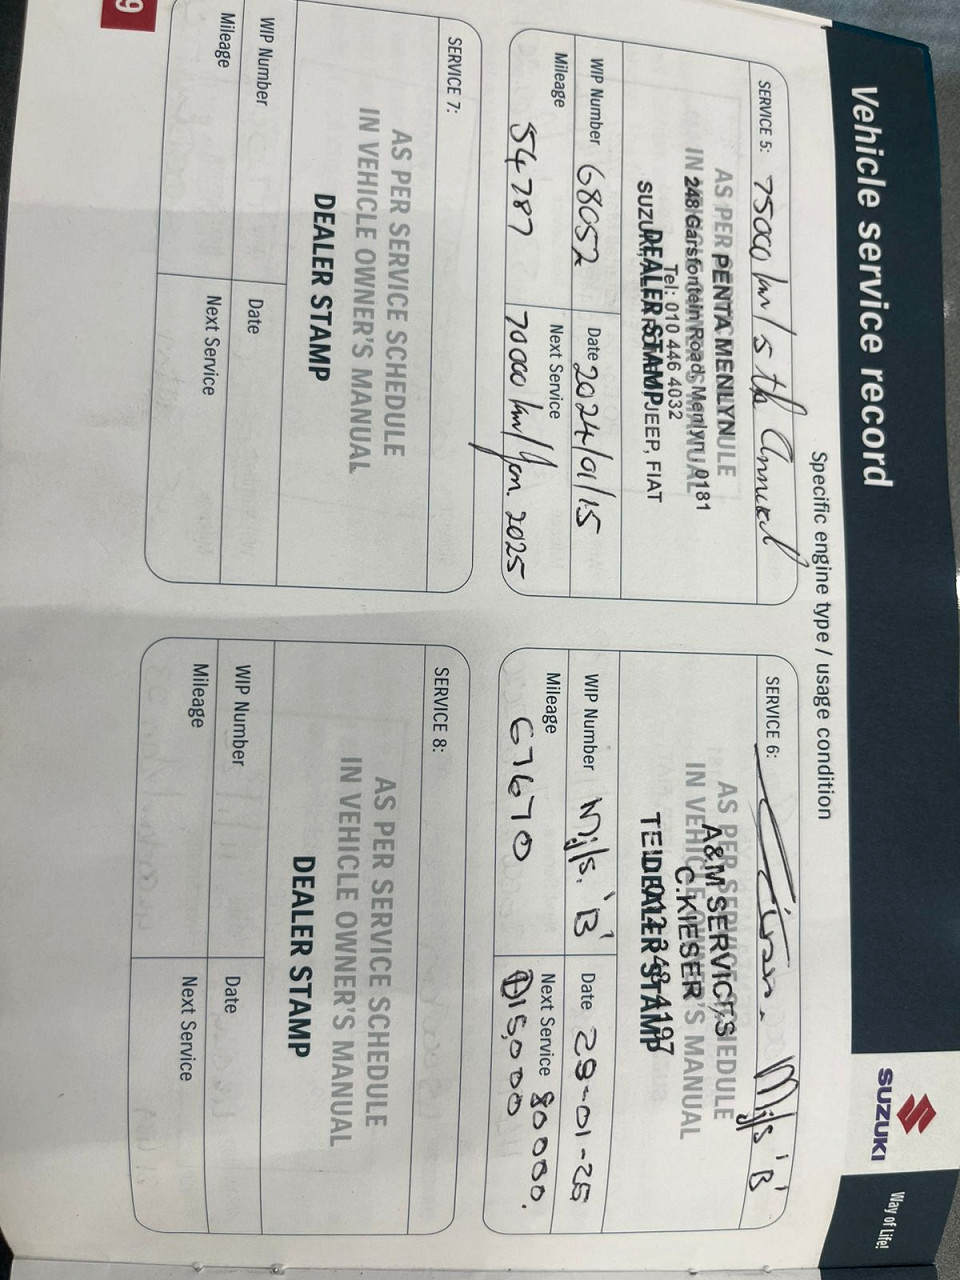 Vehicle service record
SUZUKI
Way of Life!
Specific engine type / usage condition
SERVICE 5: 75000 km/5th Annual
AS PER SERVICE SCHEDULE
IN VEHICLE OWNER'S MANUAL
DEALER STAMP
PENTA MENLYN
248 Garsfontein Road, Menlyn, 0181
Tel: 010 446 4032
SUZUKI, JEEP, FIAT
WIP Number 68052
Date 2024/01/15
Mileage 54787
Next Service 70000 km/Jan. 2025
SERVICE 6: Mjjs 'B'
AS PER SERVICE SCHEDULE
IN VEHICLE OWNER'S MANUAL
DEALER STAMP
A&M SERVICES
C.KIESER
TEL: 012 348 4197
WIP Number Mjjs. 'B'
Date 29-01-25
Mileage 67670
Next Service 80000.
15,000
SERVICE 7:
AS PER SERVICE SCHEDULE
IN VEHICLE OWNER'S MANUAL
DEALER STAMP
WIP Number
Date
Mileage
Next Service
SERVICE 8:
AS PER SERVICE SCHEDULE
IN VEHICLE OWNER'S MANUAL
DEALER STAMP
WIP Number
Date
Mileage
Next Service
9